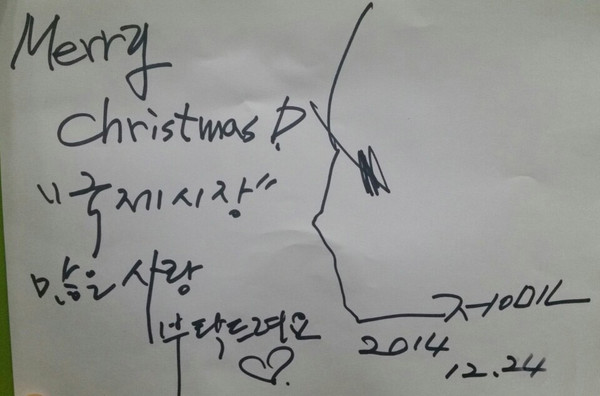 Merry
Christmas!
"국제시장"
많은 사랑
부탁드려요
♡
2014
12.24